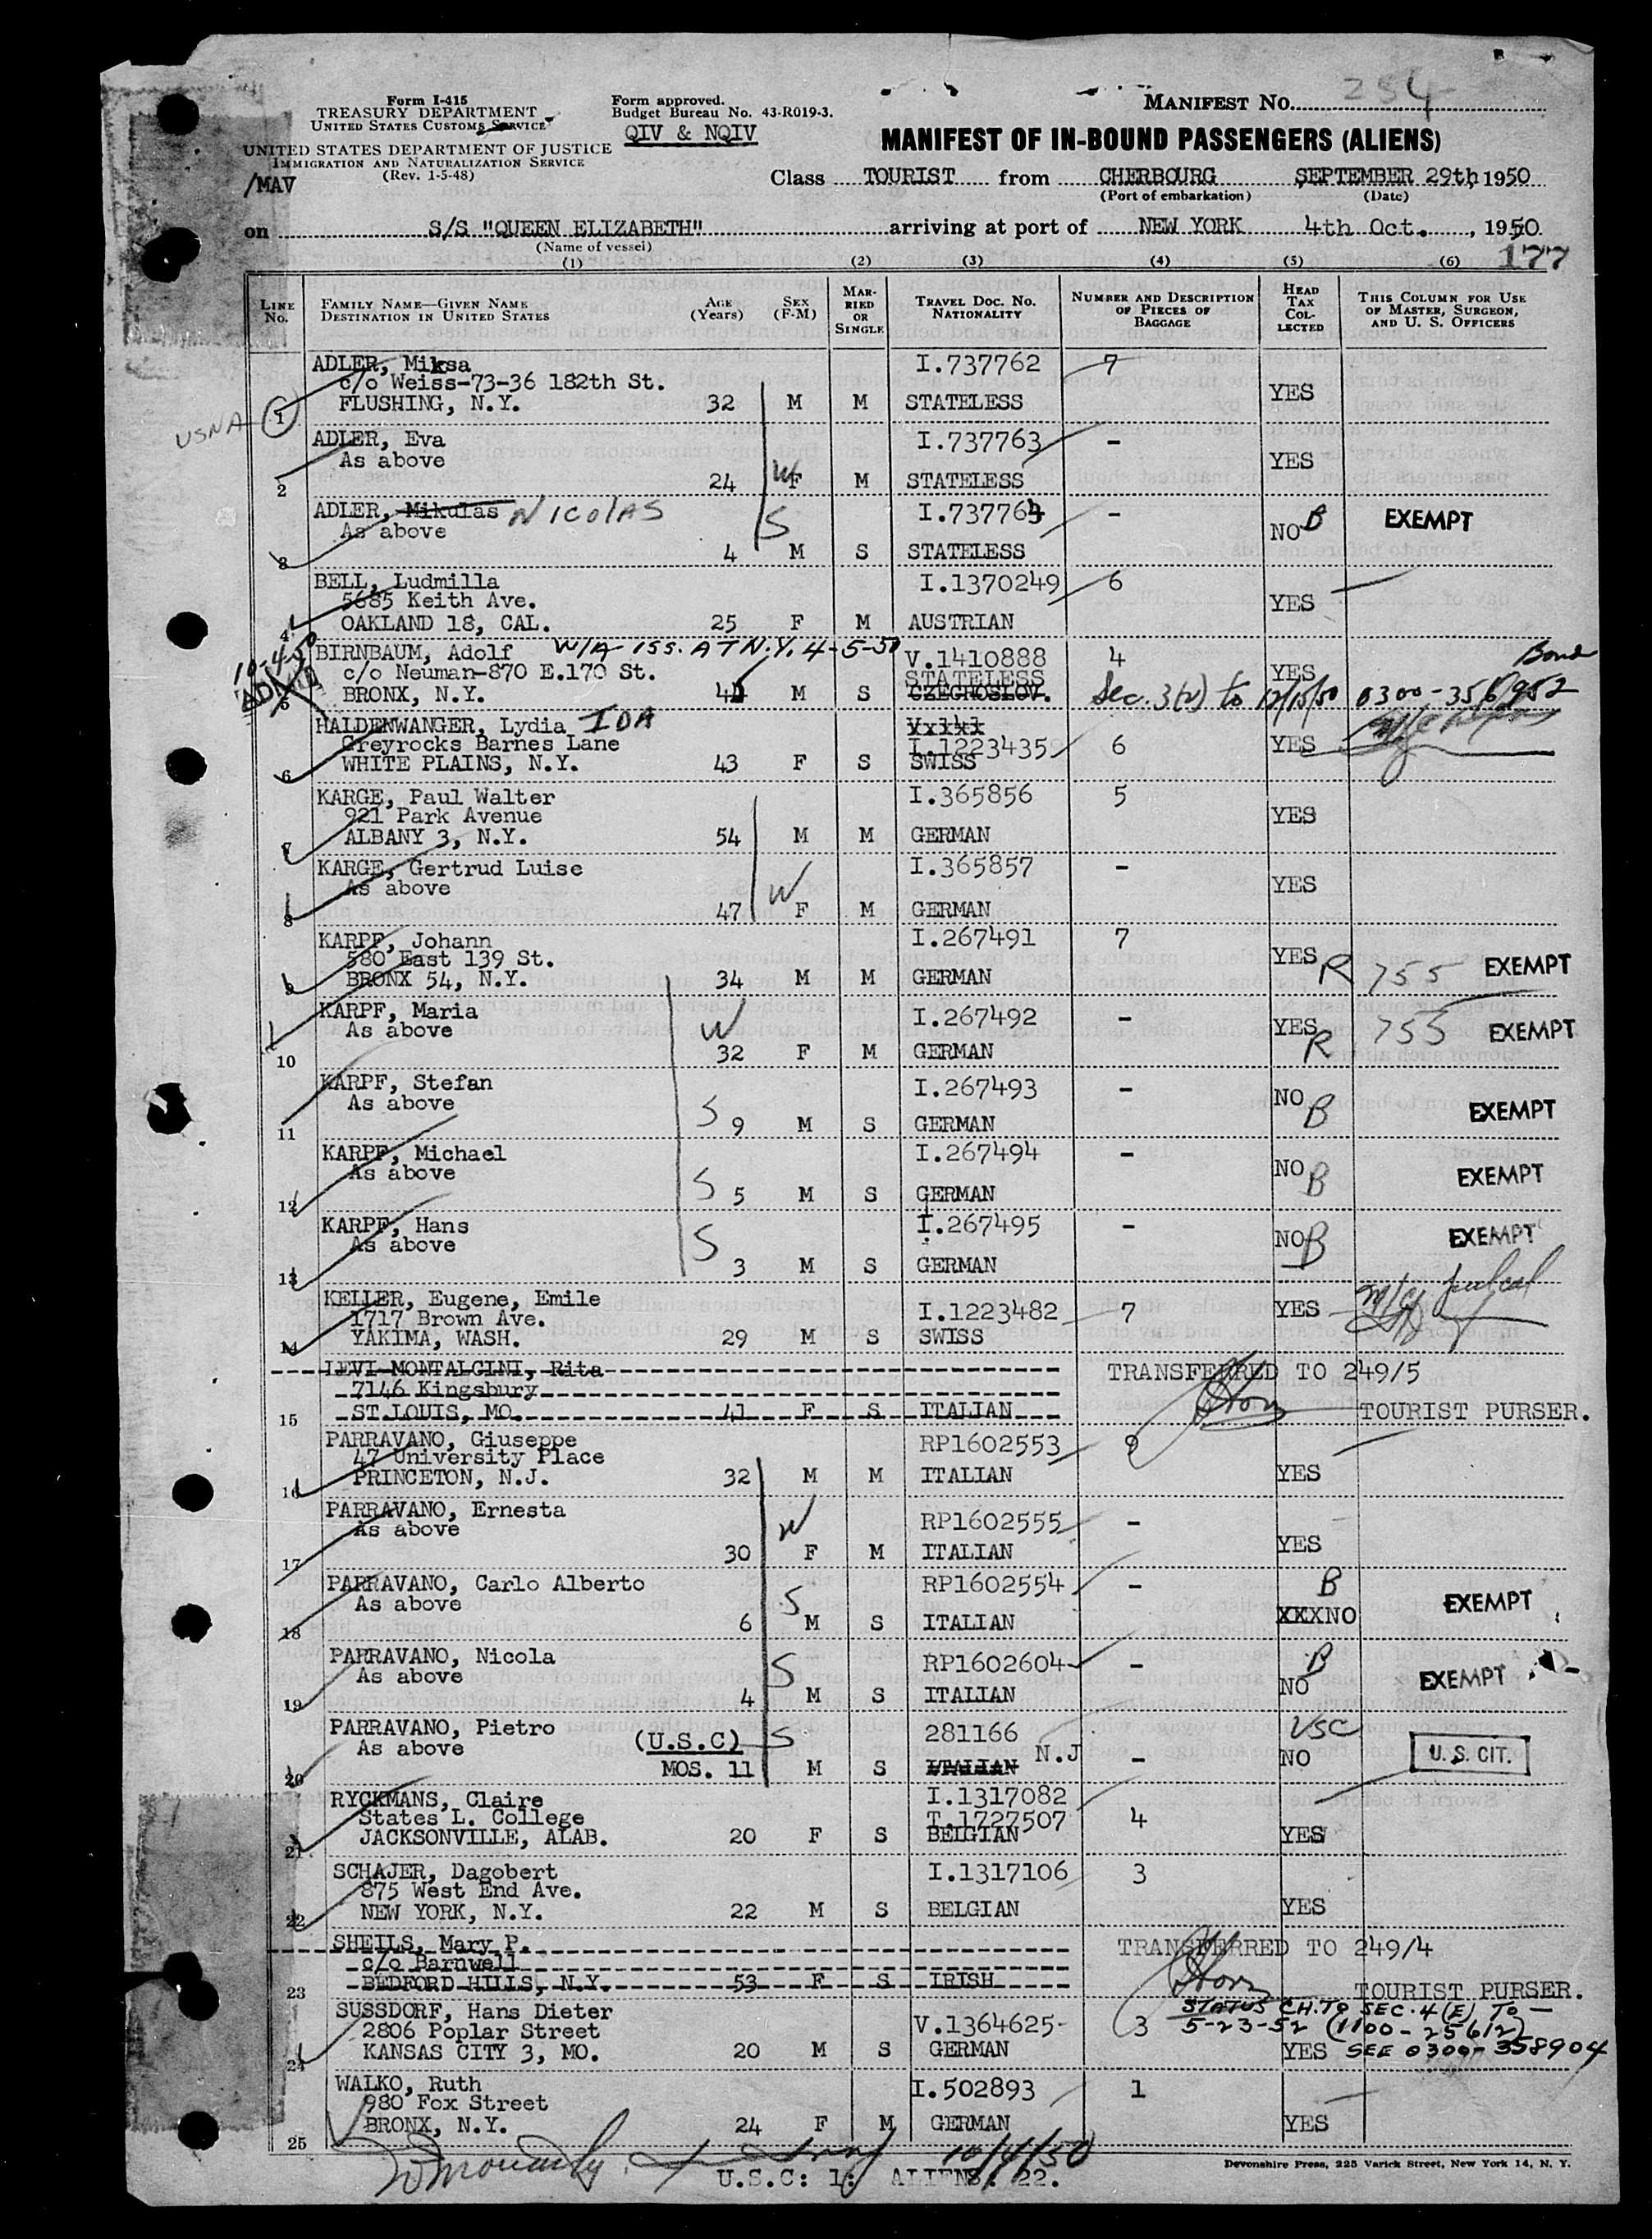 Form I-415
TREASURY DEPARTMENT
UNITED STATES CUSTOMS SERVICE
UNITED STATES DEPARTMENT OF JUSTICE
IMMIGRATION AND NATURALIZATION SERVICE
(Rev. 1-5-48)
/MAV
Form approved.
Budget Bureau No. 43-R019-3.
QIV & NQIV
MANIFEST NO. 254
MANIFEST OF IN-BOUND PASSENGERS (ALIENS)
Class TOURIST from CHERBOURG SEPTEMBER 29th, 1950
(Port of embarkation) (Date)
on S/S "QUEEN ELIZABETH" arriving at port of NEW YORK 4th Oct. , 1950
(Name of vessel)
177
(1) (2) (3) (4) (5) (6)
LINE NO. FAMILY NAME—GIVEN NAME DESTINATION IN UNITED STATES AGE (Years) SEX (F-M) MARRIED OR SINGLE TRAVEL DOC. NO. NATIONALITY NUMBER AND DESCRIPTION OF PIECES OF BAGGAGE HEAD TAX COLLECTED THIS COLUMN FOR USE OF MASTER, SURGEON, AND U. S. OFFICERS
ADLER, Miksa I.737762 7
c/o Weiss-73-36 182th St. YES
USNA 1 FLUSHING, N.Y. 32 M M STATELESS
ADLER, Eva I.737763 -
As above YES
2 24 W F M STATELESS
ADLER, Mikulas NICOLAS S I.737764 - B EXEMPT
As above NO
3 4 M S STATELESS
BELL, Ludmilla I.1370249 6
5685 Keith Ave. YES
4 OAKLAND 18, CAL. 25 F M AUSTRIAN
BIRNBAUM, Adolf W/A ISS. AT N.Y. 4-5-50 V.1410888 4 Bond
10-4-50 c/o Neuman-870 E.170 St. STATELESS YES
5 BRONX, N.Y. 44 M S CZECHOSLOV. Sec. 3(2) to 12/15/50 0300-356952
HALDENWANGER, Lydia IDA Vx141
Greyrocks Barnes Lane I.12234359 6 YES
6 WHITE PLAINS, N.Y. 43 F S SWISS
KARGE, Paul Walter I.365856 5
921 Park Avenue YES
7 ALBANY 3, N.Y. 54 M M GERMAN
KARGE, Gertrud Luise I.365857 -
As above W YES
8 47 F M GERMAN
KARPF, Johann I.267491 7
580 East 139 St. YES R 755 EXEMPT
9 BRONX 54, N.Y. 34 M M GERMAN
KARPF, Maria I.267492 -
As above W YES R 755 EXEMPT
10 32 F M GERMAN
KARPF, Stefan I.267493 -
As above S NO B EXEMPT
11 9 M S GERMAN
KARPF, Michael I.267494 -
As above NO B EXEMPT
12 S 5 M S GERMAN
KARPF, Hans I.267495 -
As above S NO B EXEMPT
13 3 M S GERMAN
KELLER, Eugene, Emile I.1223482 7 YES
1717 Brown Ave.
14 YAKIMA, WASH. 29 M S SWISS
LEVI-MONTALCINI, Rita TRANSFERRED TO 249/5
7146 Kingsbury
15 ST.LOUIS, MO. 41 F S ITALIAN TOURIST PURSER.
PARRAVANO, Giuseppe RP1602553 9
47 University Place
16 PRINCETON, N.J. 32 M M ITALIAN YES
PARRAVANO, Ernesta RP1602555 -
As above W YES
17 30 F M ITALIAN
PARRAVANO, Carlo Alberto RP1602554 - B EXEMPT
As above S
18 6 M S ITALIAN XXXNO
PARRAVANO, Nicola RP1602604 - B EXEMPT
As above S
19 4 M S ITALIAN NO
PARRAVANO, Pietro (U.S.C) S 281166 USC
As above N.J - NO U. S. CIT.
20 MOS. 11 M S ITALIAN
RYCKMANS, Claire I.1317082
States L. College T.1727507 4
21 JACKSONVILLE, ALAB. 20 F S BELGIAN YES
SCHAJER, Dagobert I.1317106 3
875 West End Ave.
22 NEW YORK, N.Y. 22 M S BELGIAN YES
SHEILS, Mary P. TRANSFERRED TO 249/4
c/o Barnwell
23 BEDFORD HILLS, N.Y. 53 F S IRISH TOURIST PURSER.
SUSSDORF, Hans Dieter STATUS CH. TO SEC. 4 (E) TO —
2806 Poplar Street V.1364625 3 5-23-52 (1100-25612)
24 KANSAS CITY 3, MO. 20 M S GERMAN YES SEE 0300-358904
WALKO, Ruth I.502893 1
980 Fox Street
25 BRONX, N.Y. 24 F M GERMAN YES
10/4/50
U.S.C: 1: ALIENS. 22.
Devonshire Press, 225 Varick Street, New York 14, N. Y.